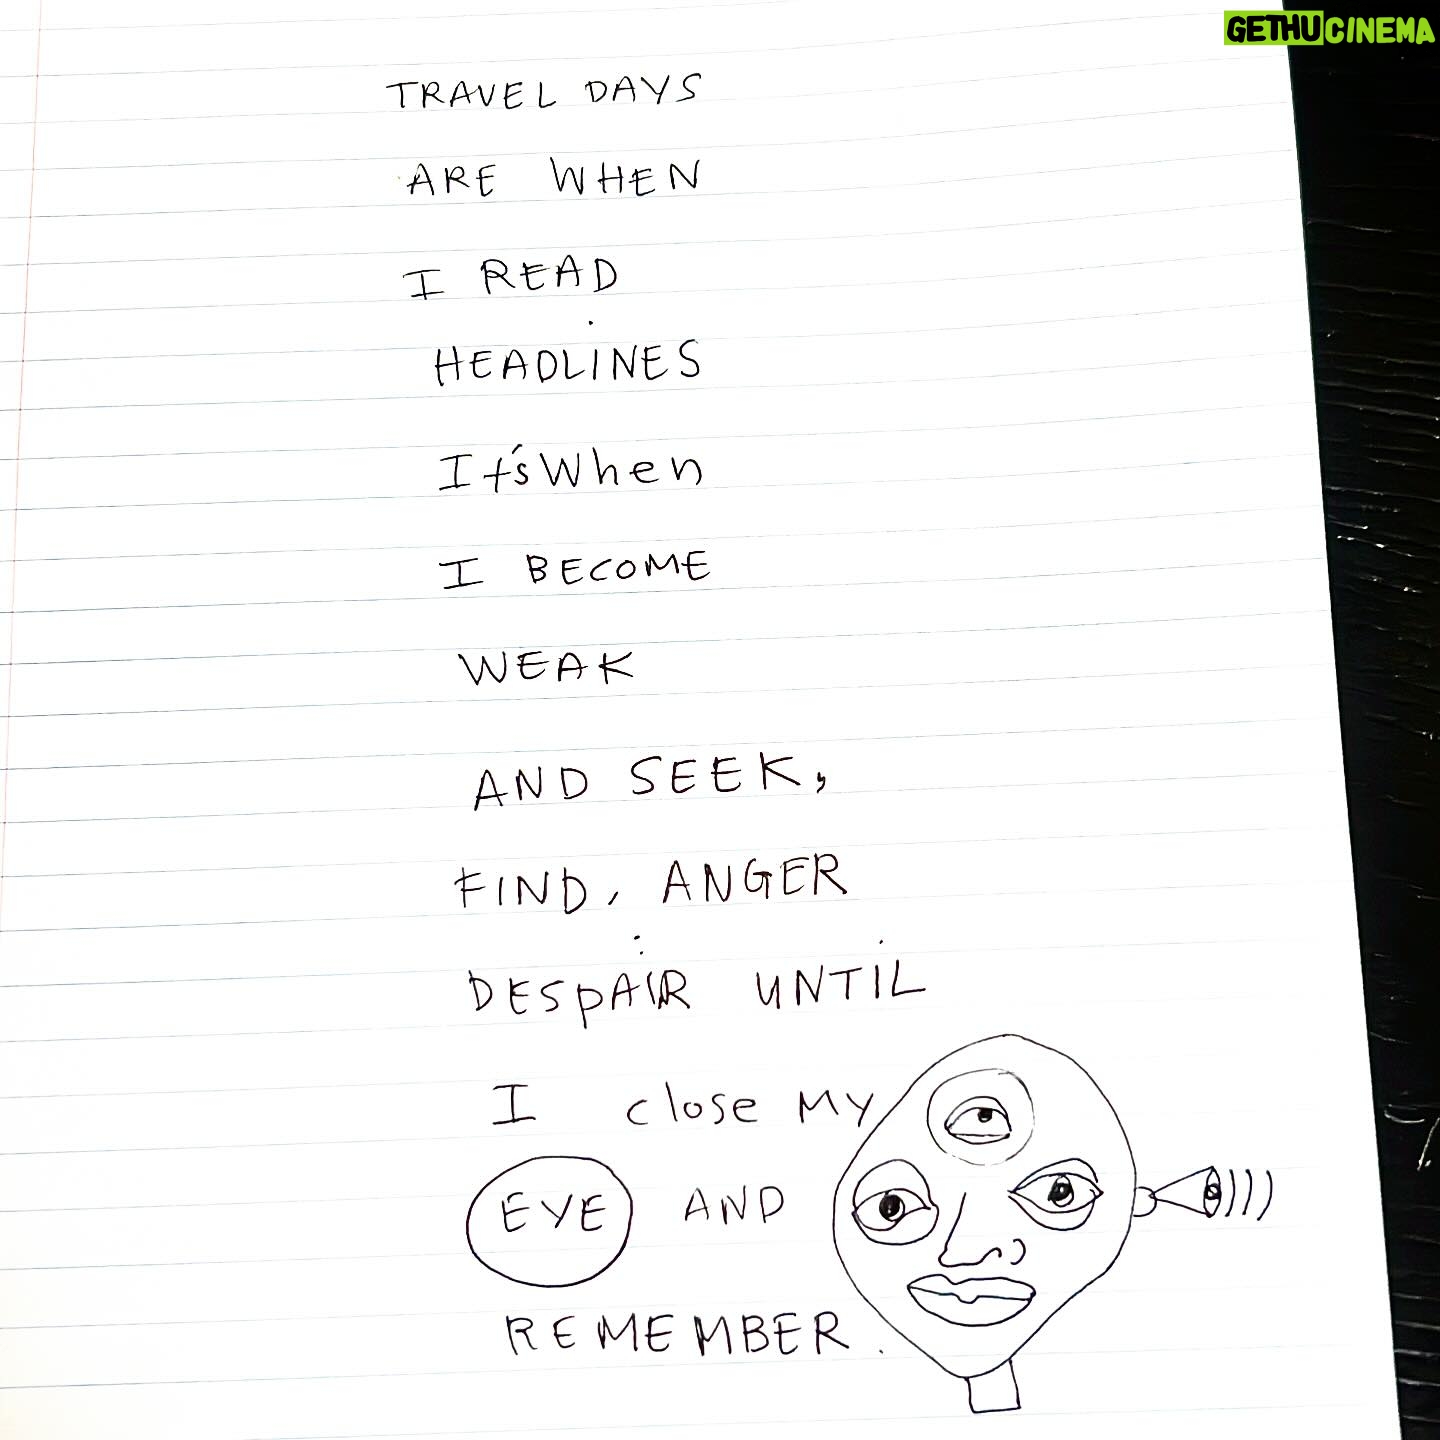 GETHUCINEMA
TRAVEL DAYS
ARE WHEN
I READ
HEADLINES
It's When
I BECOME
WEAK
AND SEEK,
FIND, ANGER
DESPAIR UNTIL
I close MY
EYE AND
REMEMBER.